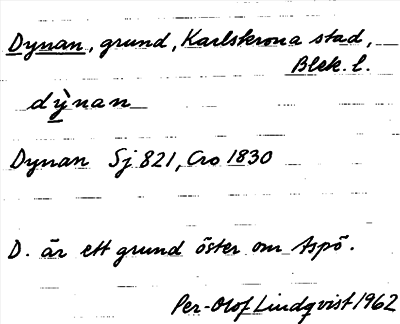 Dynan, grund, Karlskrona stad,
Blek. l.
dỳnan
Dynan Sj 821, Cro 1830
D. är ett grund öster om Aspö.
Per-Olof Lindqvist 1962